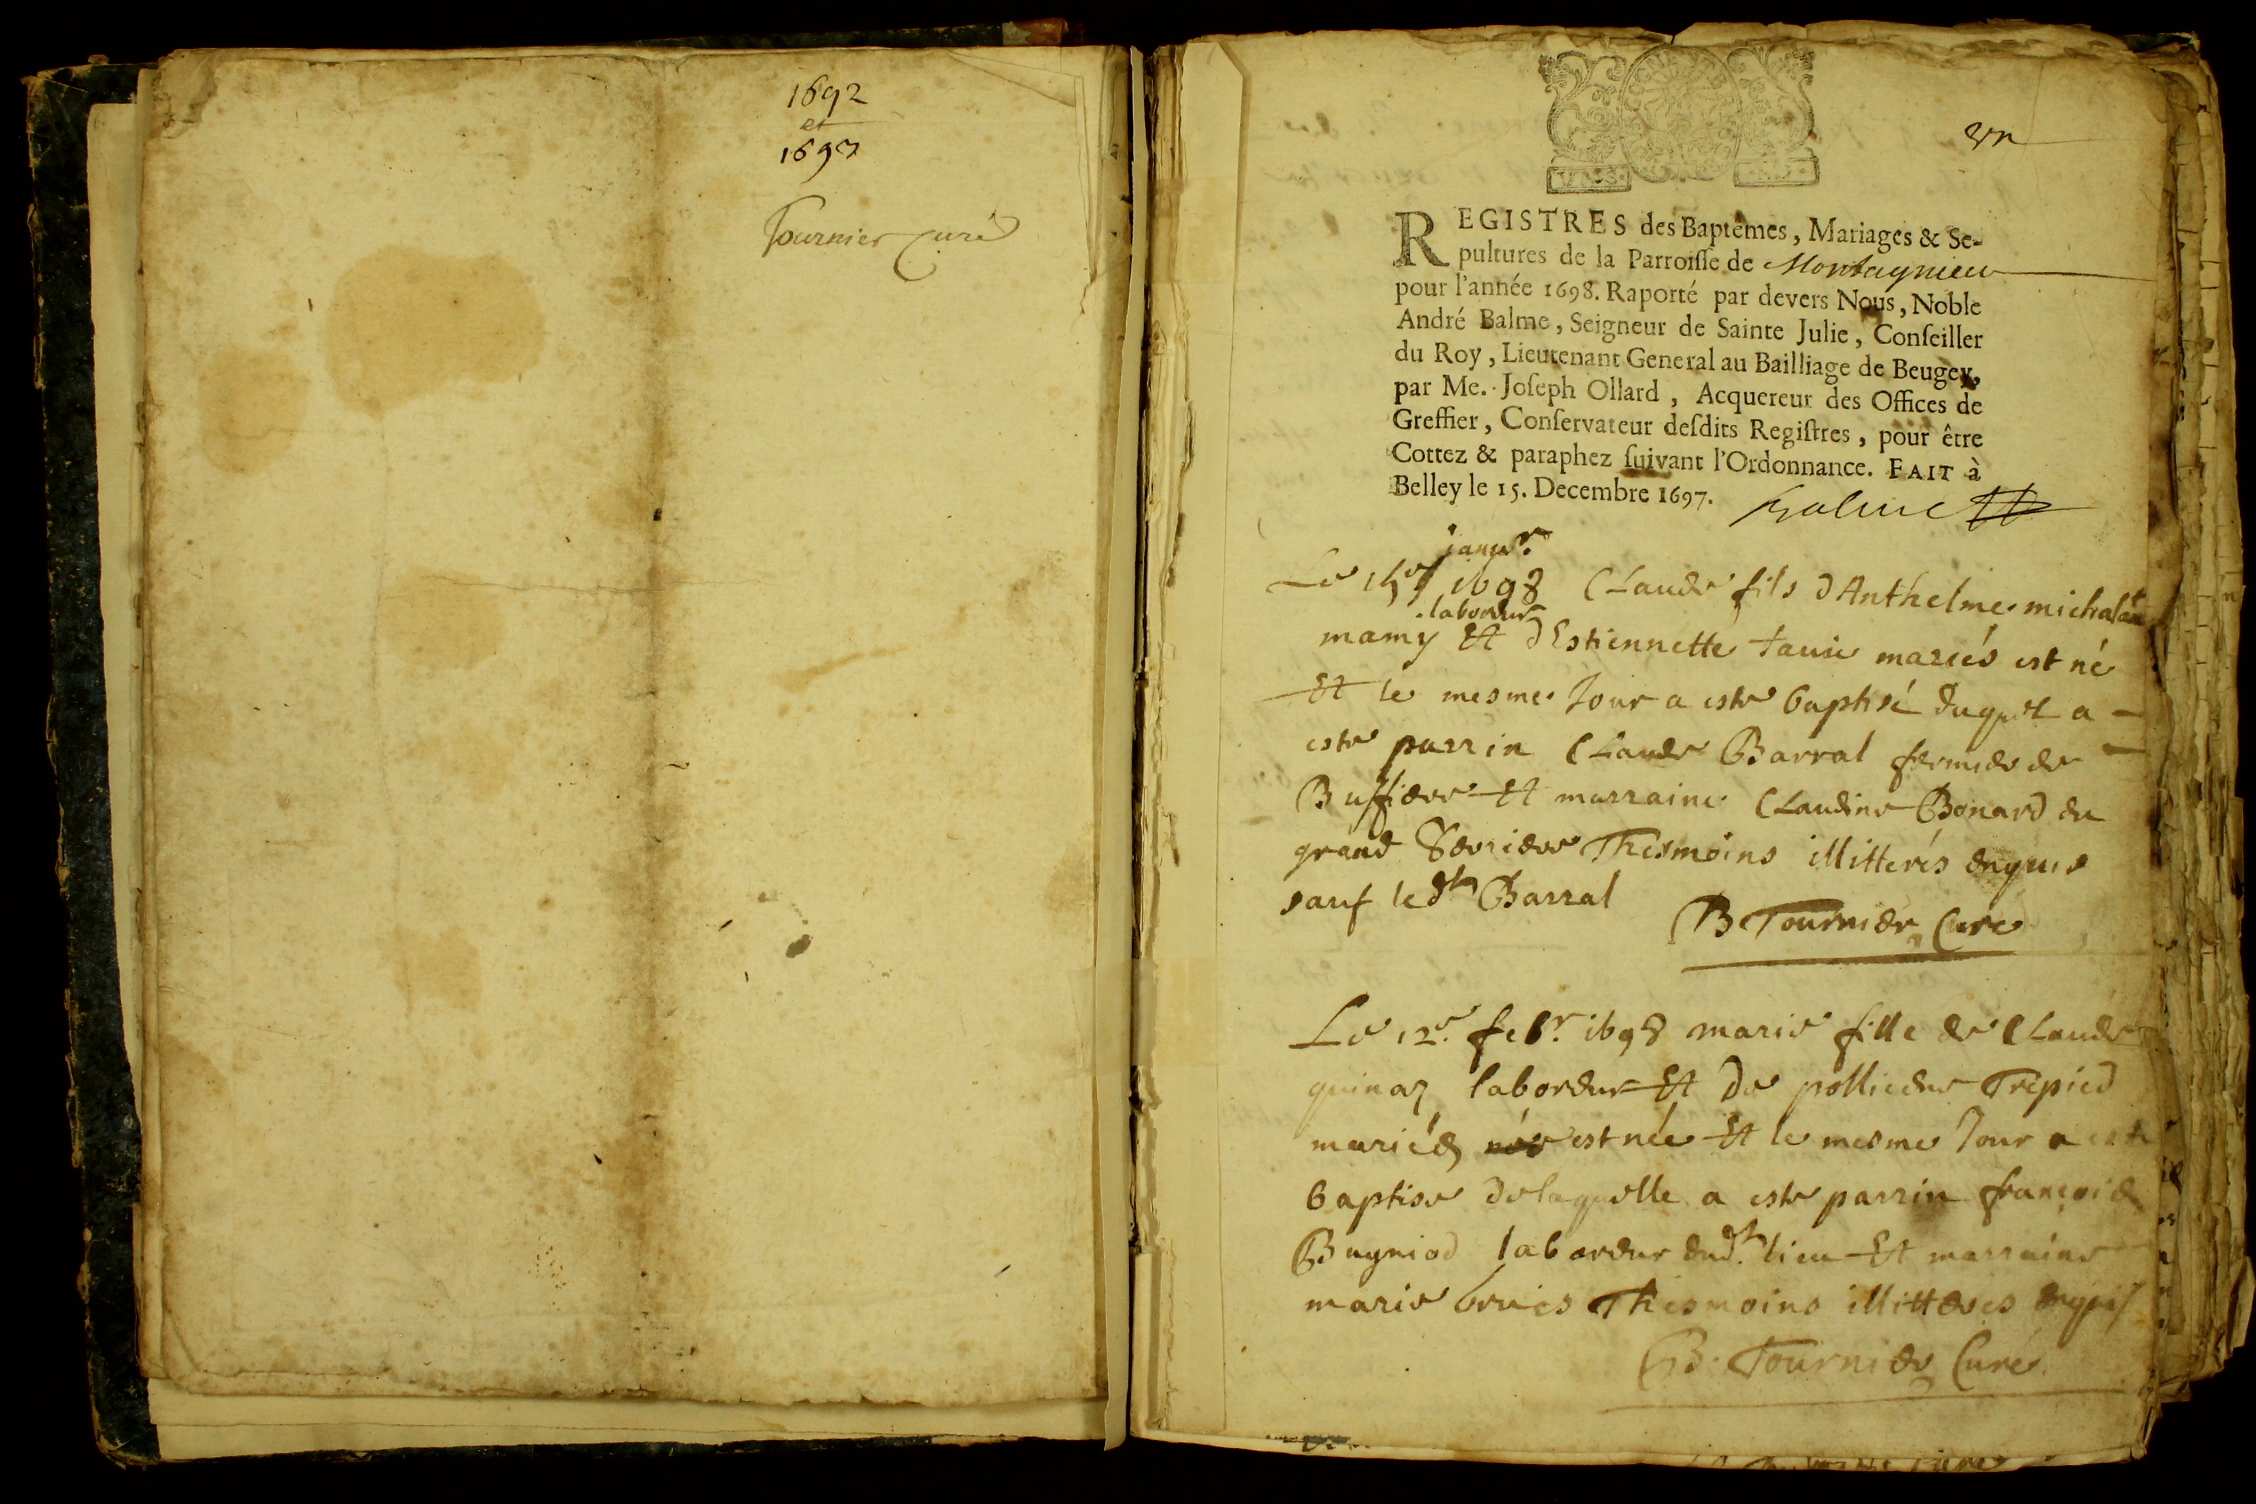 1692
et
1693
Tournier Curé
vn
REGISTRES des Baptêmes, Mariages & Se-
pultures de la Parroisse de Montagnieu
pour l'année 1698. Raporté par devers Nous, Noble
André Balme, Seigneur de Sainte Julie, Conseiller
du Roy, Lieutenant General au Bailliage de Beugey,
par Me. Joseph Ollard, Acquereur des Offices de
Greffier, Conservateur desdits Registres, pour être
Cottez & paraphez suivant l'Ordonnance. FAIT à
Belley le 15. Decembre 1697.
Balme
janvr.
Le 1698 Claude fils d'Anthelme
laboreur
mamy et d'Estiennette mariés est né
Et le mesme Jour a este baptisé duquel a
este parrin Claude Barral fermier de
Buffiere et marraine Claudine Bonard du
grand Thesmoins illitterés enquis
sauf ledt Barral
B Tournier Curé
Le 12e. febr. 1698 marie fille de Claude
quinaz laboreur Et de Trepied
mariés est née Et le mesme Jour a este
baptise delaquelle a este parrin françois
Bugniod laboreur dud. lieu Et marraine
marie Thesmoins illitteres enquis
B. Tournier Curé